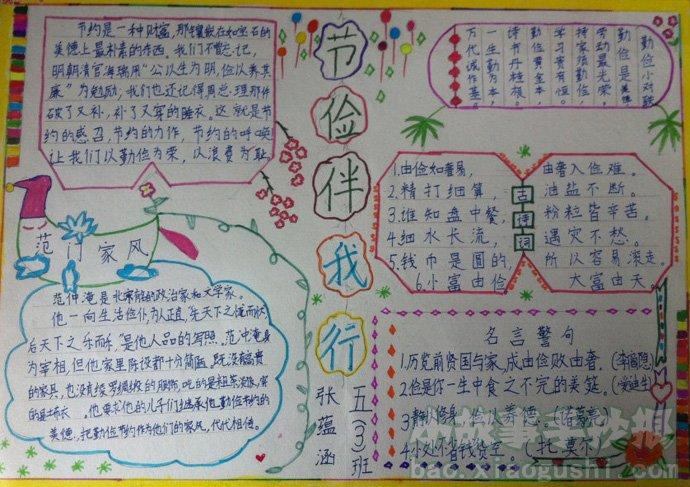 节约是一种财富,那镶嵌在如宝石的
美德上最朴素的东西,我们不曾忘记,
明朝清官海瑞用“公以生为明,俭以养其
廉”为勉励,我们也还记得周总理那件
破了又补,补了又穿的睡衣。这就是节
约的感召,节约的力作,节约的呼唤
让我们以勤俭为荣,以浪费为耻
范门家风
范仲淹是北宋的政治家和文学家。
他一向生活俭仆为人正直,先天下之忧而忧
后天下之乐而乐,是他人品的写照,范仲淹身
为宰相,但他家里陈设都十分简陋,既没有贵
的家具,也没有绫罗绸缎的服饰,吃的是粗茶淡饭,穿
的是土布衣。他要求他的儿子们继承他勤俭节约的
美德,把勤俭节约作为他们的家风,代代相传。
节俭伴我行
五(3)班
张蕴涵
勤俭小对联
勤俭是美德
劳动最光荣。
持家须勤俭,
学习贵有恒。
勤俭黄金本,
诗书丹桂根。
一生勤为本,
万代诚作基。
古诗词
1.由俭如奢易, 由奢入俭难。
2.精打细算, 油盐不断。
3.谁知盘中餐, 粉粒皆辛苦。
4.细水长流, 遇灾不愁。
5.钱币是圆的, 所以容易滚走。
6.小富由俭 大富由天
名言警句
1.历览前贤国与家,成由俭败由奢。(李商隐)
2.俭是你一生中食之不完的美筵。(爱迪生)
3.静以修身,俭以养德。(诸葛亮)
bao.xiaogushi.com/